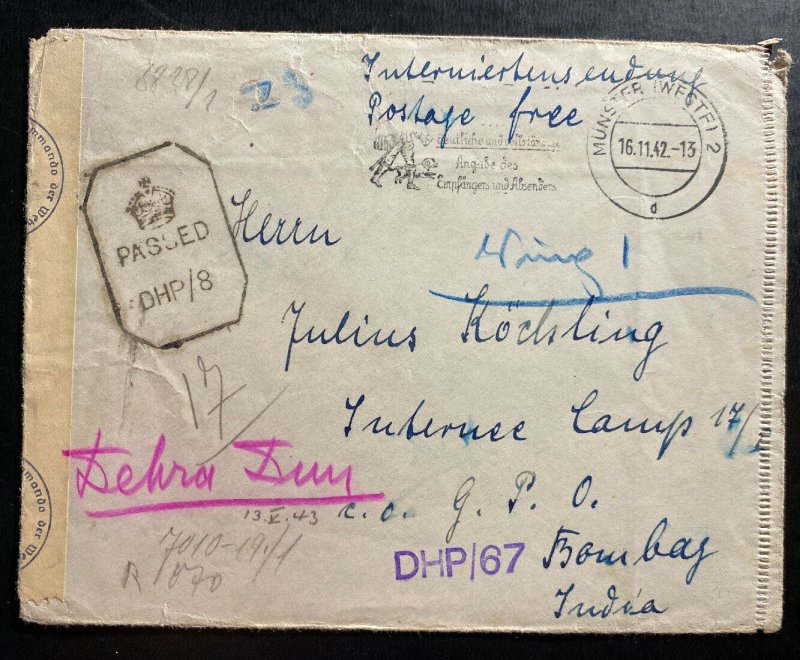 6228/1
23
Interniertensendung
Postage free
MÜNSTER (WESTF) 2
16.11.42.-13
d
deutliche und
Angabe des
Empfängers und Absenders
Kommando der Weh
PASSED
DHP/8
Herrn
Wing 1
Julius Köchling
17
Internee Camp 17/
Dehra Dun
13.V.43
c.o. G.P.O.
7010-19/1
DHP/67
Bombay
Indıa
ommando der Weh